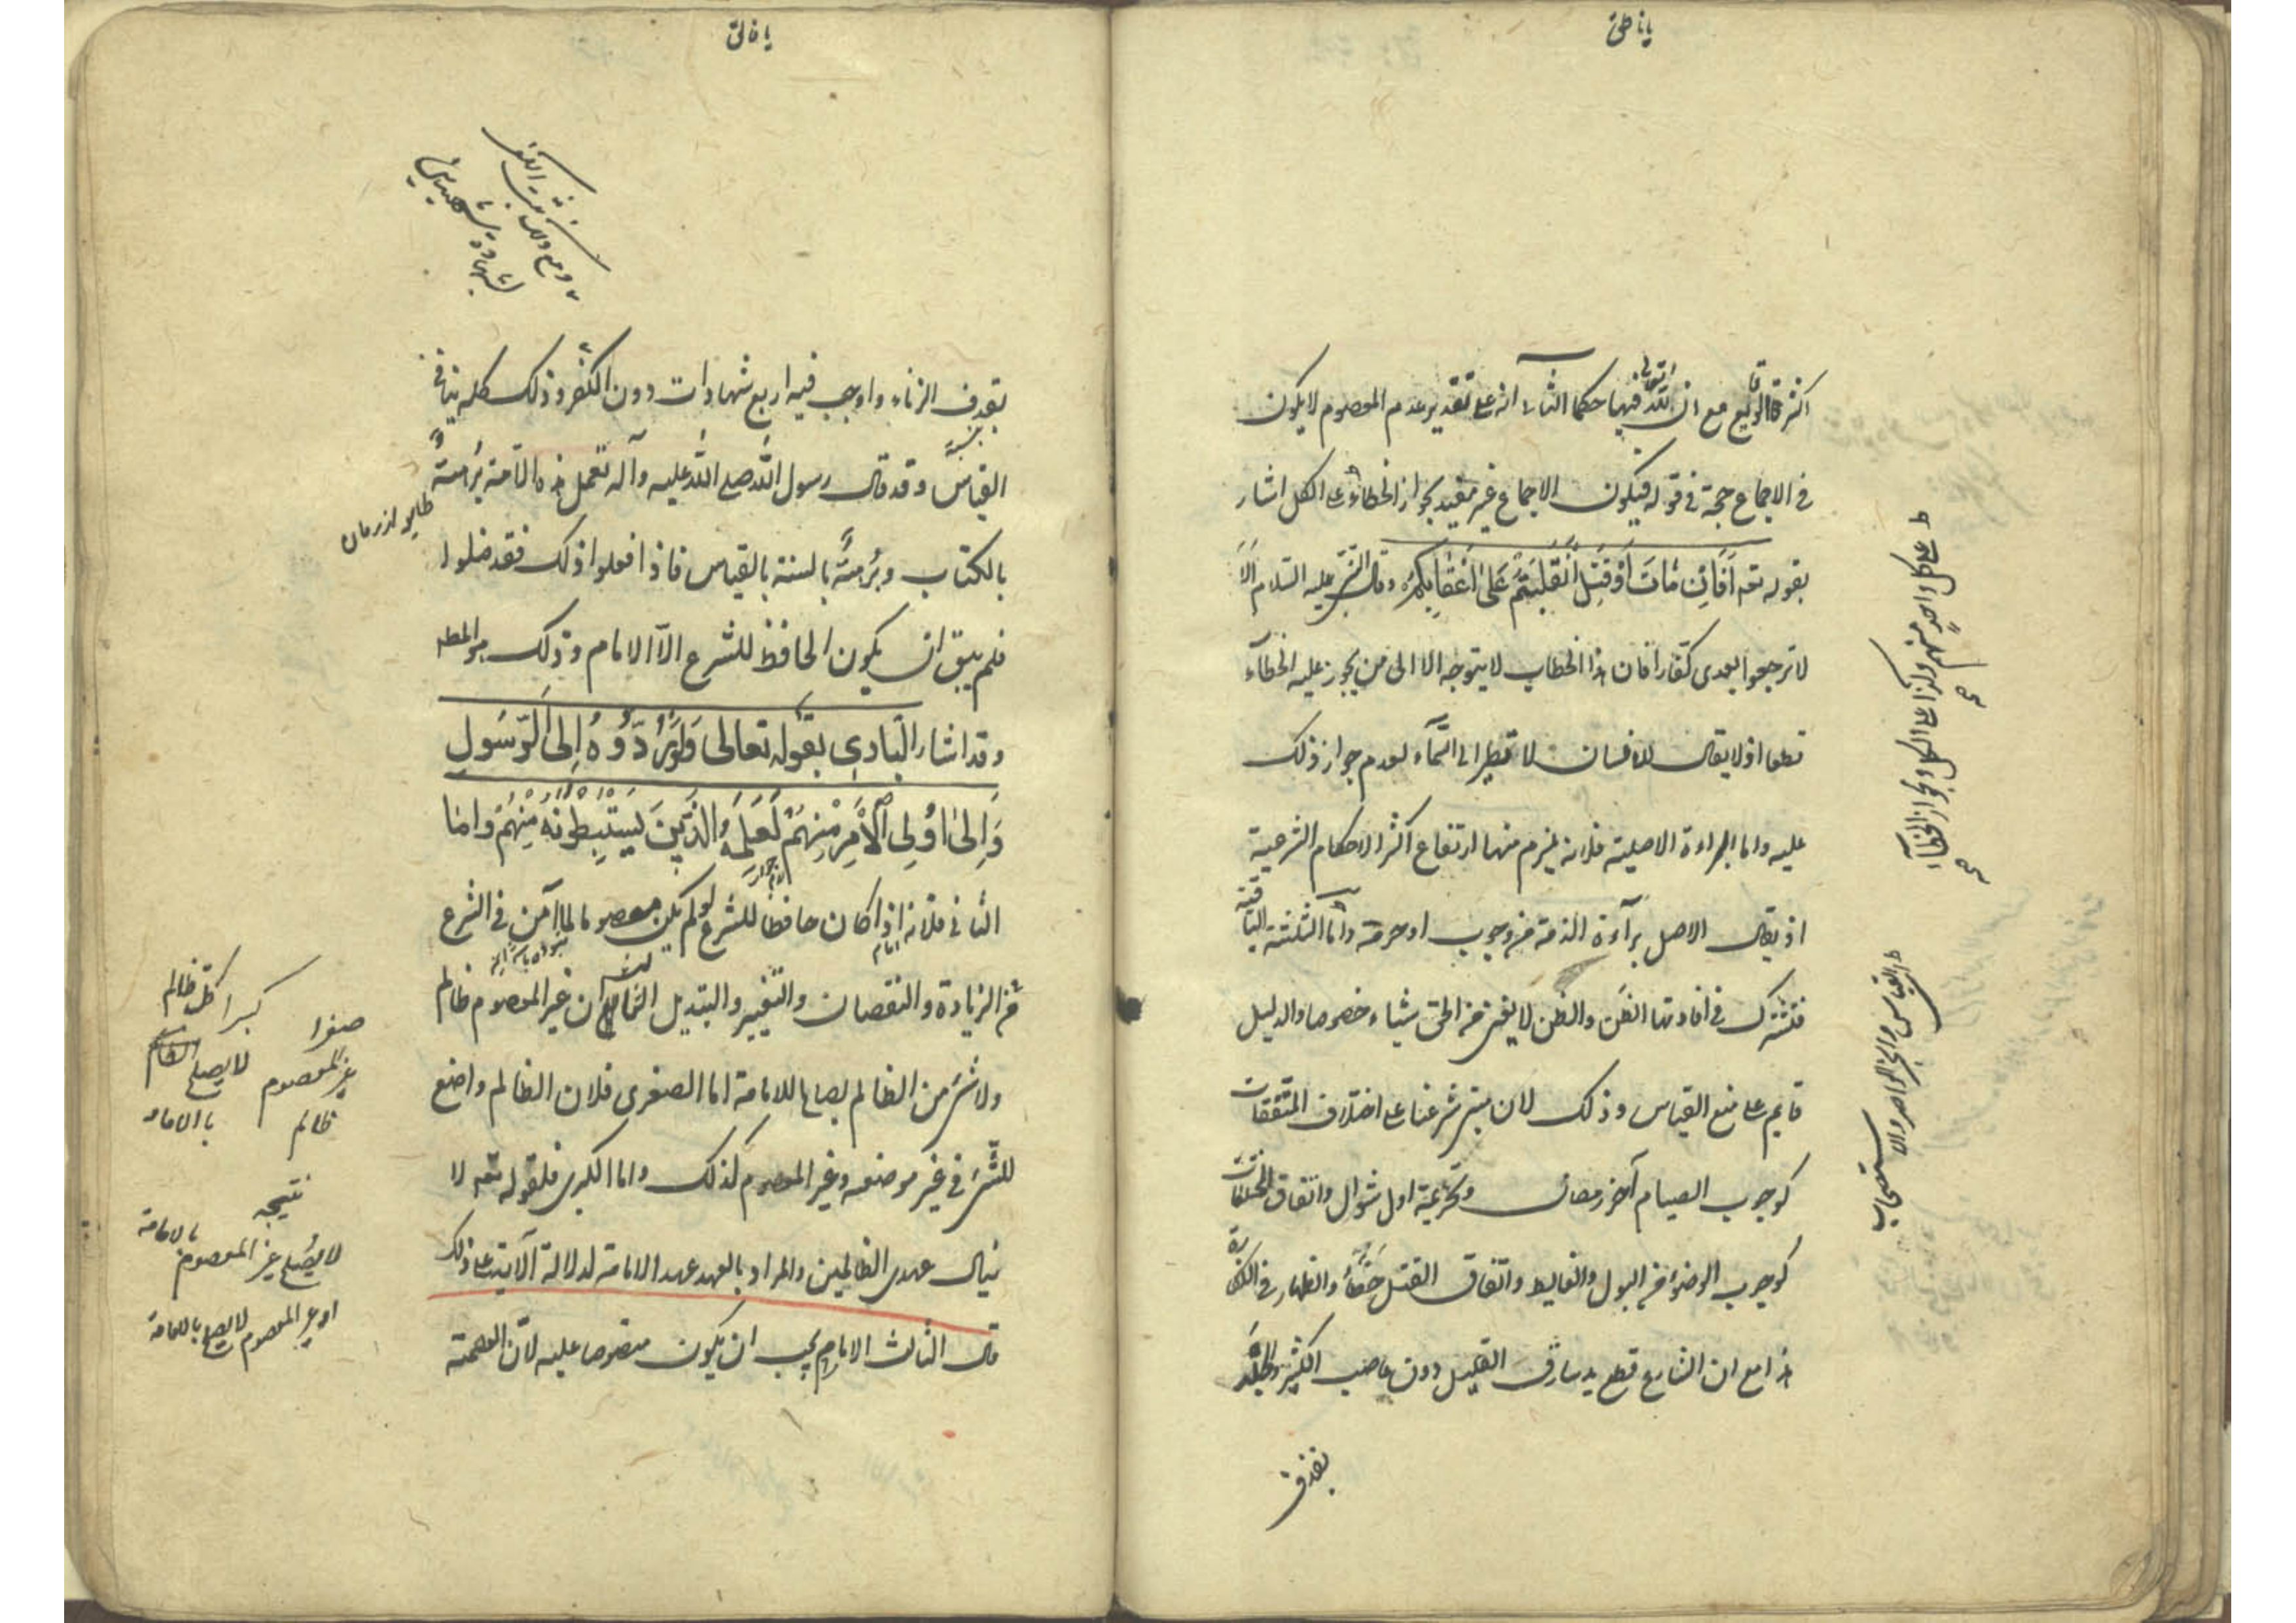 يا ناطق
اكثر الوقايع مع ان لله تعالى فيها حكما الثانى انه على تقدير عدم المعصوم لا يكون
فى الاجماع حجة فى قوله فيكون الاجماع غير مفيد لجواز الخطاء على الكل اشار
بقوله تعه أَفَإِن مَاتَ أَوْ قُتِلَ انْقَلَبْتُمْ عَلَى أَعْقَابِكُمْ وقال النبى عليه السلام اَلَا
لا ترجعوا بعدى كفارا فان هذا الخطاب لا يتوجه الا الى من يجوز عليه الخطاء
قطعا اذ لا يقال للانسان لا تطير الى السّمآء لعدم جواز ذلك
عليه واما البراءة الاصلية فلانه يلزم منها ارتفاع اكثر الاحكام الشرعية
اذ يقال الاصل برآءة الذمة من وجوب او حرمة واما الثلثة الباقية
فتشترك فى افادتها الظن والظن لا يغنى من الحق شيئا خصوصا والدليل
قايم على منع القياس وذلك لان مبنى شرعنا على اختلاف المتفقات
كوجوب الصيام آخر رمضان وتحريمه اول شوال واتفاق المختلفات
كوجوب الوضوء من البول والغايط واتفاق القتل خطاءً والظهار فى الكفارة
هذا مع ان الشارع قطع يد سارق القليل دون غاصب الكثير وجلد
بقذف
ط على كل واحدٍ منهم وكذا على الكل لجواز الخطاء
القياس والخبر الواحد والاستصحاب
يا فالق
ومع ذلك
شهادة شهيدين
بقذف الزناء واوجب فيه اربع شهادات دون الكفر وذلك كله ينافى
القياس وقد قال رسول الله صلى الله عليه وآله تعمل هذه الامة بُرهةً
بالكتاب وبُرهةً بالسنة بالقياس فاذا فعلوا ذلك فقد ضلوا
فلم يبق ان يكون الحافظ للشرع الّا الامام وذلك هو المطلوب
وقد اشار البارى بقوله تعالى وَلَوْ رَدُّوهُ إِلَى الرَّسُولِ
وَإِلَى أُولِى الْأَمْرِ مِنْهُمْ لَعَلِمَهُ الَّذِينَ يَسْتَنْبِطُونَهُ مِنْهُمْ واما
الثانى فلانه اذا كان حافظًا للشرع لو لم يكن معصوما لما آمن فى الشرع
من الزيادة والنقصان والتغيير والتبديل الثالث ان غير المعصوم ظالم
ولا شئ من الظالم بصالح للامامة اما الصغرى فلان الظالم واضع
للشئ فى غير موضعه وغير المعصوم كذلك واما الكبرى فلقوله تعه لا
ينال عهدى الظالمين والمراد بالعهد عهد الامامة لدلالة الآية على ذلك
قال الثالث الامام يجب ان يكون منصوصا عليه لانّ العصمة
صغرا
غير المعصوم
ظالم
كبرا كل ظالم
لا يصلح
نتيجه
لا يصلح غير المعصوم بالامامة
او غير المعصوم لا يصلح بالامامة